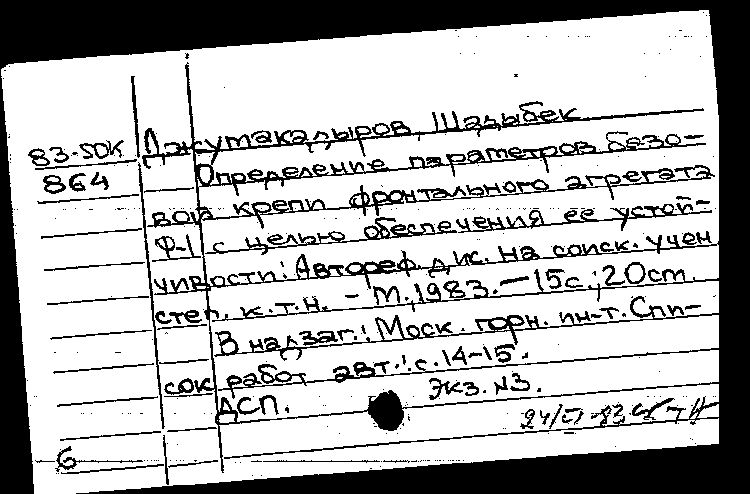 83-5ДК Джумакадыров, Шадыбек.
864 Определение параметров безо-
вой крепи фронтального агрегата
Ф-1 с целью обеспечения ее устой-
чивости: Автореф. дис. на соиск. учен
степ. к.т.н. - М., 1983. - 15с.; 20см.
В надзаг.: Моск. горн. ин-т. Спи-
сок работ авт.: с. 14-15.
ДСП. Экз. №3.
6